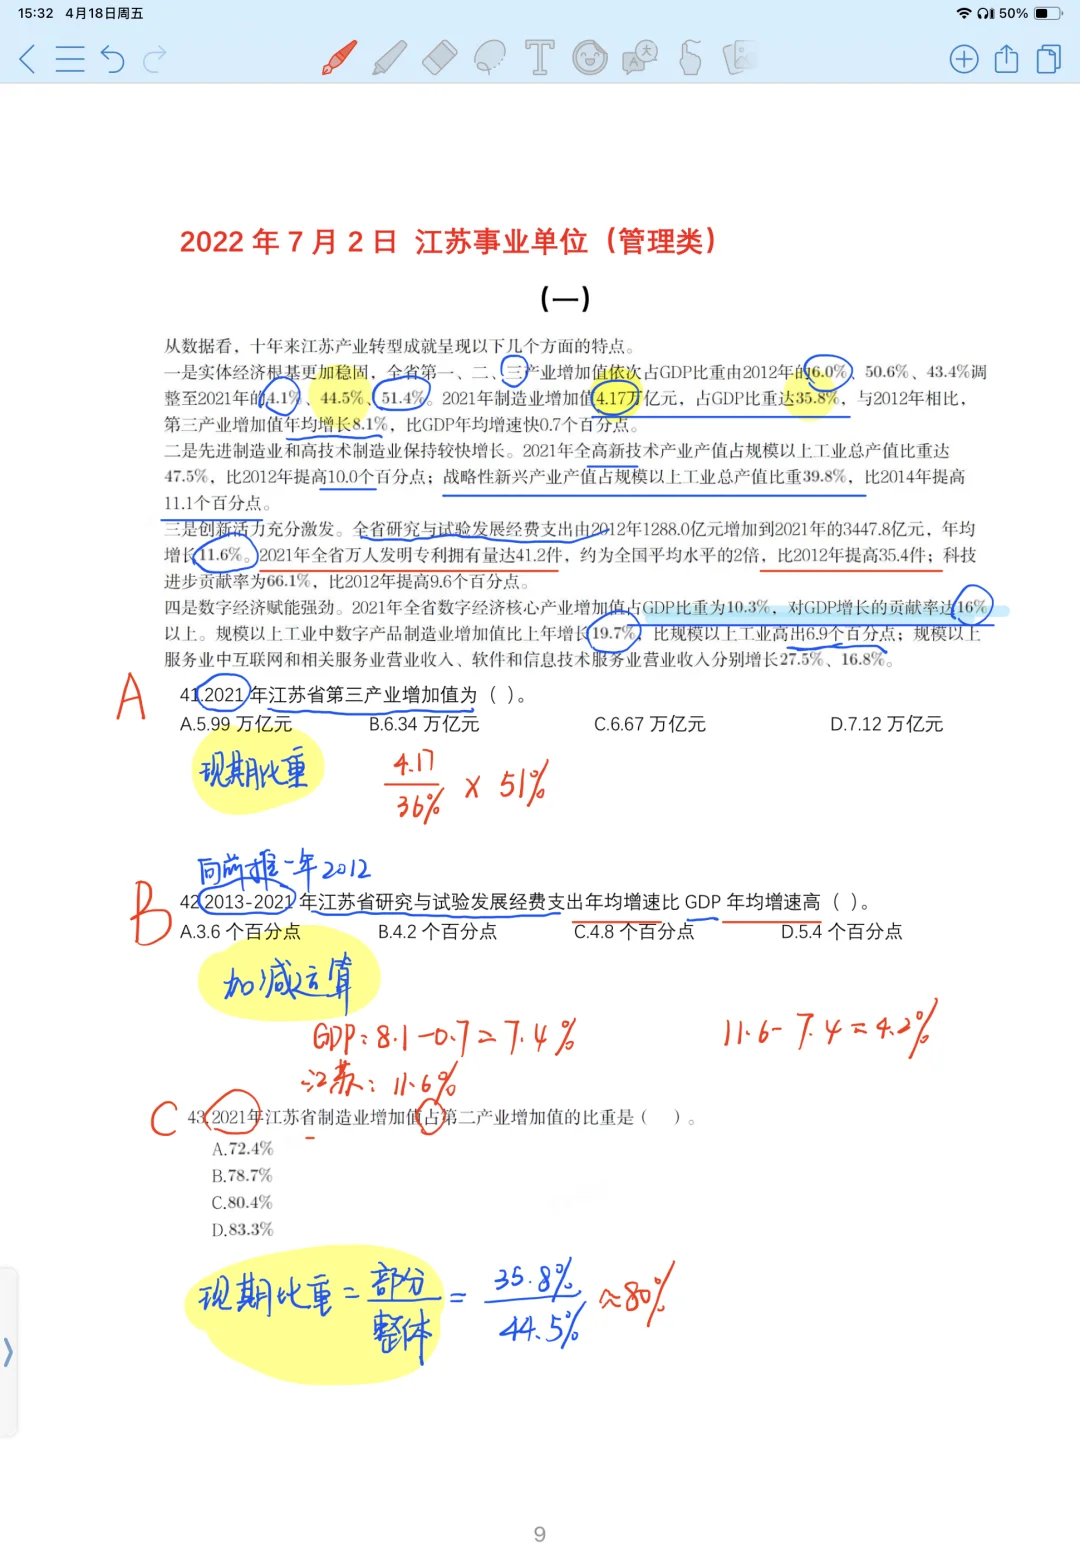 15:32 4月18日周五
50%
2022 年 7 月 2 日 江苏事业单位（管理类）
（一）
从数据看，十年来江苏产业转型成就呈现以下几个方面的特点。
一是实体经济根基更加稳固，全省第一、二、三产业增加值依次占GDP比重由2012年的6.0%、50.6%、43.4%调
整至2021年的4.1%、44.5%、51.4%。2021年制造业增加值4.17万亿元，占GDP比重达35.8%，与2012年相比，
第三产业增加值年均增长8.1%，比GDP年均增速快0.7个百分点。
二是先进制造业和高技术制造业保持较快增长。2021年全高新技术产业产值占规模以上工业总产值比重达
47.5%，比2012年提高10.0个百分点；战略性新兴产业产值占规模以上工业总产值比重39.8%，比2014年提高
11.1个百分点。
三是创新活力充分激发。全省研究与试验发展经费支出由2012年1288.0亿元增加到2021年的3447.8亿元，年均
增长11.6%。2021年全省万人发明专利拥有量达41.2件，约为全国平均水平的2倍，比2012年提高35.4件；科技
进步贡献率为66.1%，比2012年提高9.6个百分点。
四是数字经济赋能强劲。2021年全省数字经济核心产业增加值占GDP比重为10.3%，对GDP增长的贡献率达16%
以上。规模以上工业中数字产品制造业增加值比上年增长19.7%，比规模以上工业高出6.9个百分点；规模以上
服务业中互联网和相关服务业营业收入、软件和信息技术服务业营业收入分别增长27.5%、16.8%。
A
41.2021 年江苏省第三产业增加值为（ ）。
A.5.99 万亿元 B.6.34 万亿元 C.6.67 万亿元 D.7.12 万亿元
现期比重 4.17/36% × 51%
向前推一年2012
B
42.2013-2021 年江苏省研究与试验发展经费支出年均增速比 GDP 年均增速高（ ）。
A.3.6 个百分点 B.4.2 个百分点 C.4.8 个百分点 D.5.4 个百分点
加减运算
GDP：8.1-0.7=7.4% 11.6-7.4=4.2%
江苏：11.6%
C
43.2021年江苏省制造业增加值占第二产业增加值的比重是（ ）。
A.72.4%
B.78.7%
C.80.4%
D.83.3%
现期比重=部分/整体=35.8%/44.5%≈80%
9